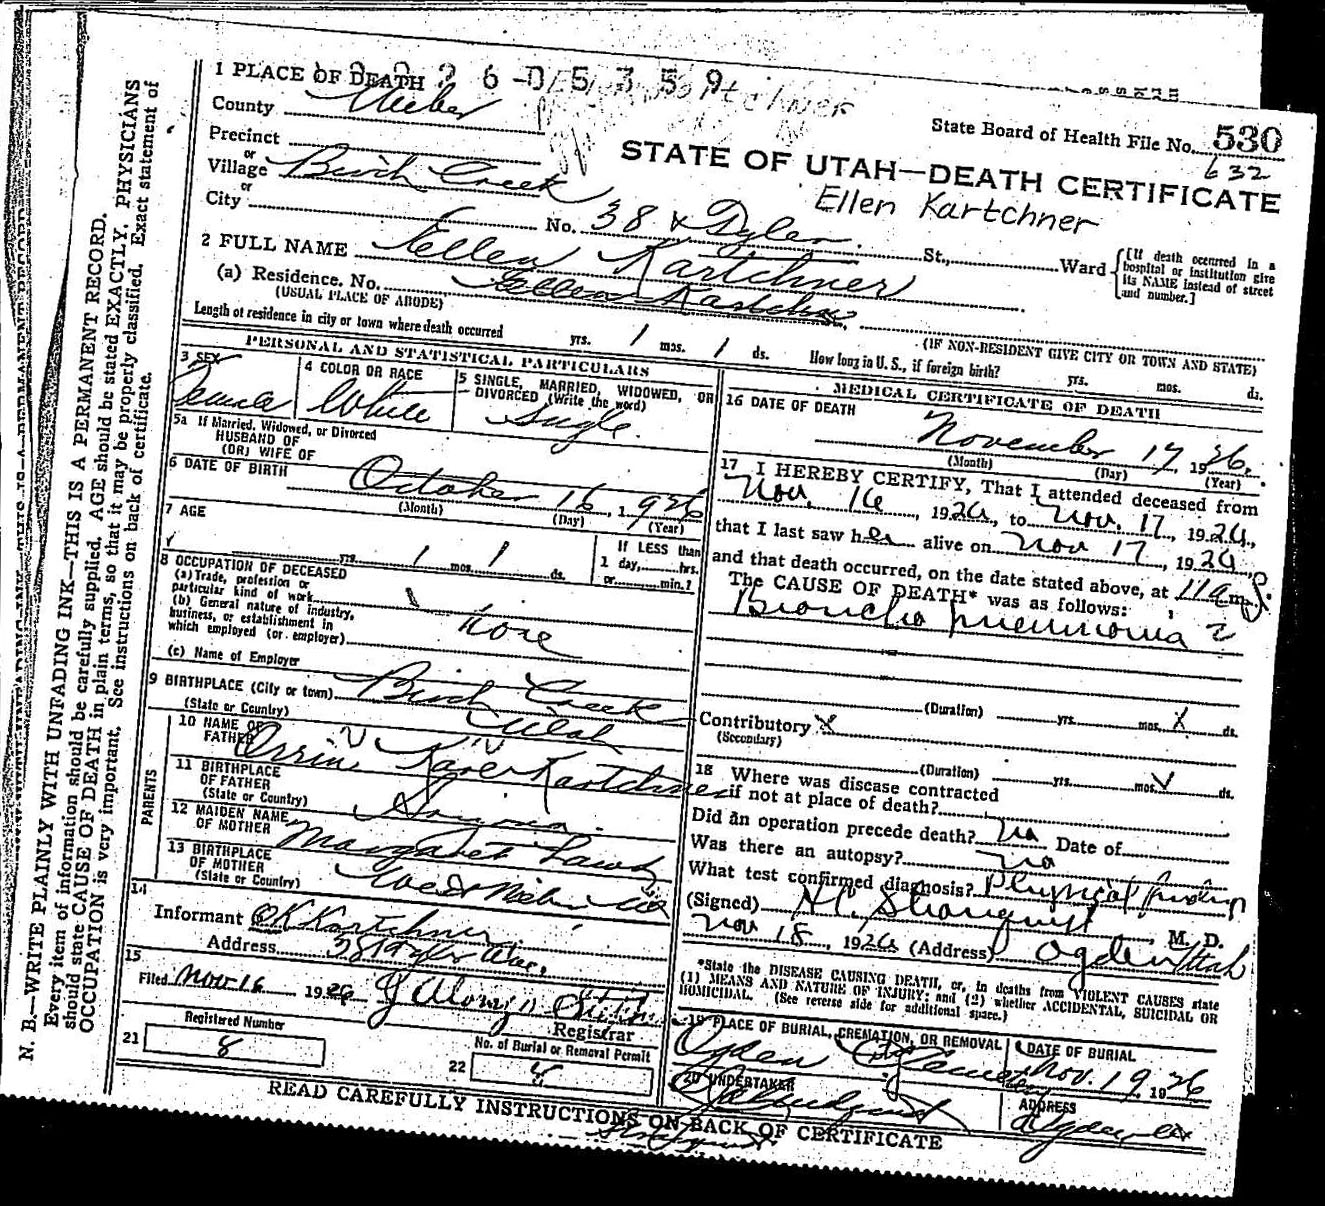 1 PLACE OF DEATH
County Weber
State Board of Health File No. 530
632
Precinct
or
Village Birch Creek
or
City
STATE OF UTAH—DEATH CERTIFICATE
Ellen Kartchner
No. 38 & Tyler St., Ward
[If death occurred in a hospital or institution give its NAME instead of street and number.]
2 FULL NAME Ellen Kartchner
(a) Residence. No. Ellen Kartchner
(USUAL PLACE OF ABODE)
(IF NON-RESIDENT GIVE CITY OR TOWN AND STATE)
Length of residence in city or town where death occurred yrs. 1 mos. 1 ds. How long in U. S., if foreign birth? yrs. mos. ds.
PERSONAL AND STATISTICAL PARTICULARS
3 SEX Female
4 COLOR OR RACE White
5 SINGLE, MARRIED, WIDOWED, OR DIVORCED (Write the word) Single.
5a If Married, Widowed, or Divorced
HUSBAND OF
(OR) WIFE OF
6 DATE OF BIRTH October 16, 1926
(Month) (Day) (Year)
7 AGE
yrs. 1 mos. 1 ds.
If LESS than
1 day, hrs.
or min.?
8 OCCUPATION OF DECEASED
(a) Trade, profession or
particular kind of work
(b) General nature of industry,
business, or establishment in
which employed (or employer) None
(c) Name of Employer
9 BIRTHPLACE (City or town) Birch Creek
(State or Country) Utah
PARENTS
10 NAME OF FATHER Orrin Kartchner
11 BIRTHPLACE
OF FATHER
(State or Country) Arizona.
12 MAIDEN NAME
OF MOTHER Margaret
13 BIRTHPLACE
OF MOTHER
(State or Country)
14
Informant O K Kartchner
Address 38 & Tyler Ave.
15
Filed Nov 16 1926
Registrar
Registered Number
21 8
No. of Burial or Removal Permit
22
MEDICAL CERTIFICATE OF DEATH
16 DATE OF DEATH
November 17, 1926.
(Month) (Day) (Year)
17 I HEREBY CERTIFY, That I attended deceased from
Nov. 16, 1926, to Nov. 17, 1926,
that I last saw her alive on Nov 17, 1926
and that death occurred, on the date stated above, at 11 a m.
The CAUSE OF DEATH* was as follows:
Broncho pneumonia
(Duration) yrs. mos. ds.
Contributory
(Secondary)
(Duration) yrs. mos. ds.
18 Where was disease contracted
if not at place of death?
Did an operation precede death? No Date of
Was there an autopsy? No
What test confirmed diagnosis? Physical findings
(Signed) H.C. Stranquist M. D.
Nov 18, 1926 (Address) Ogden Utah
*State the DISEASE CAUSING DEATH, or, in deaths from VIOLENT CAUSES state
(1) MEANS AND NATURE OF INJURY; and (2) whether ACCIDENTAL, SUICIDAL OR
HOMICIDAL. (See reverse side for additional space.)
19 PLACE OF BURIAL, CREMATION, OR REMOVAL
Ogden City Cemetery
DATE OF BURIAL
Nov. 19, 1926
20 UNDERTAKER
ADDRESS
Ogden
READ CAREFULLY INSTRUCTIONS ON BACK OF CERTIFICATE
N. B.—WRITE PLAINLY WITH UNFADING INK—THIS IS A PERMANENT RECORD.
Every item of information should be carefully supplied. AGE should be stated EXACTLY. PHYSICIANS
should state CAUSE OF DEATH in plain terms, so that it may be properly classified. Exact statement of
OCCUPATION is very important. See instructions on back of certificate.